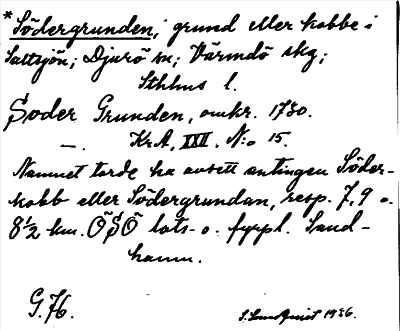 *Södergrunden, grund eller kobbe i
Saltsjön; Djurö sn; Värmdö skg;
Sthlms l.
Soder Grunden, omkr. 1730.
—. Kr.A. XXI. N:o 15.
Namnet torde ha avsett antingen Söder-
kobb eller Södergrundan, resp. 7,9 o.
8½ km. ÖSÖ lots- o. fyrpl. Sand-
hamn.
G.76. S. Lundqvist 1936.